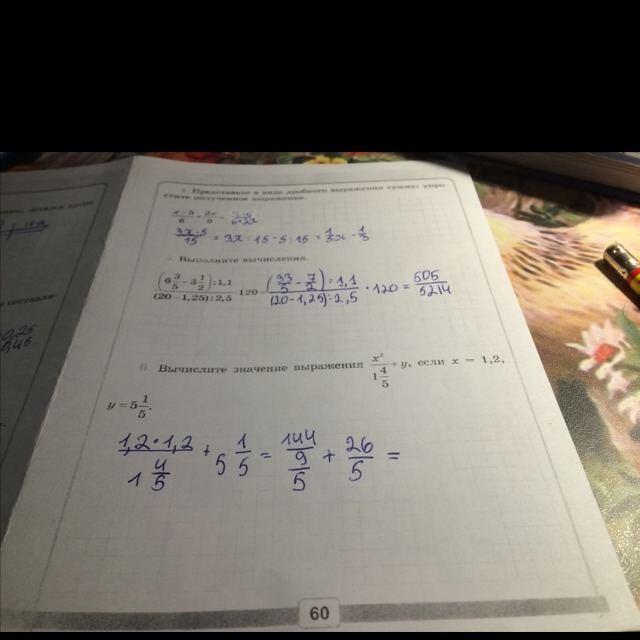 4. Представьте в виде дробного выражения сумму; упро-
стите полученное выражение.
(x-5)/6 + 2x/9 =
(3x-5)/15 = 3x : 15 - 5 : 15 = 1/5x - 1/3
5. Выполните вычисления.
((6 3/5 - 3 1/2) : 1,1)/((20 - 1,25) : 2,5) · 120 = ((33/5 - 7/2) : 1,1)/((20 - 1,25) : 2,5) · 120 = 505/5214
6. Вычислите значение выражения x²/(1 4/5) + y, если x = 1,2,
y = 5 1/5.
(1,2 · 1,2)/(1 4/5) + 5 1/5 = 144/(9/5) + 26/5 =
60
0,25